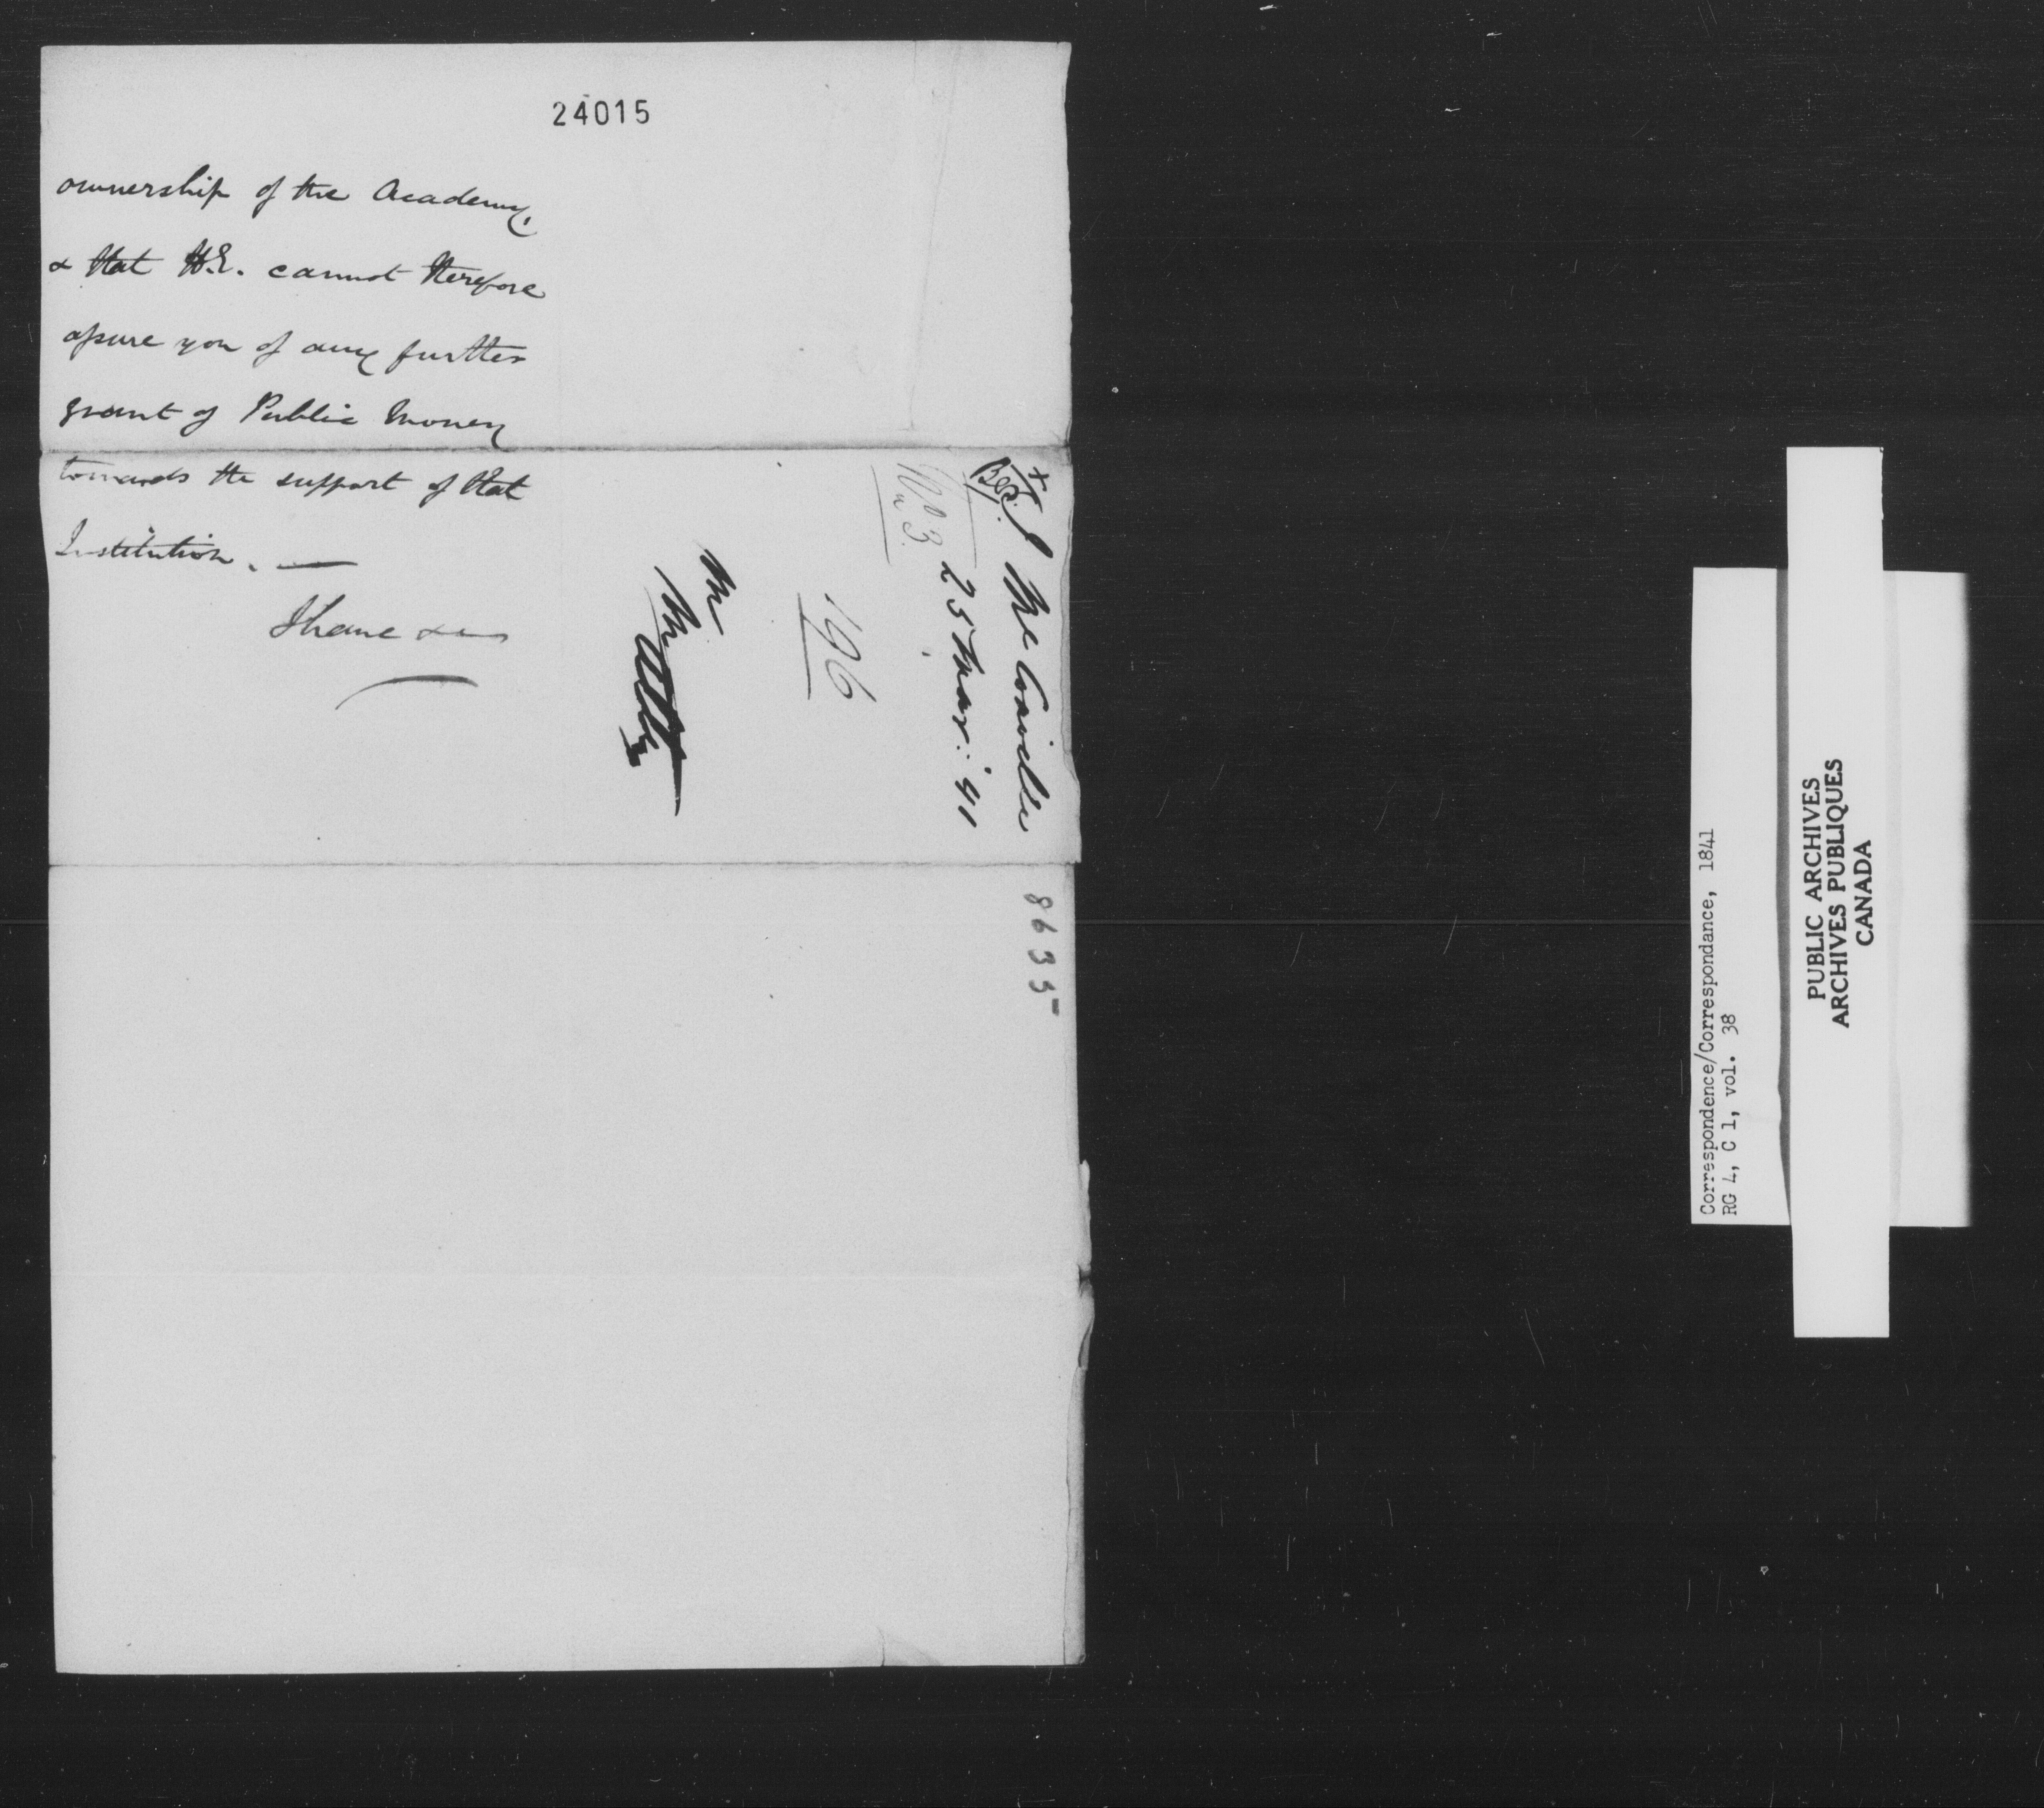 24015
ownership of the Academy,
& that H.E. cannot therefore
assure you of any further
grant of Public Money
towards the support of that
Institution. —
I have &c
No 3
25 Mar: '41
196
8635
Correspondence/Correspondance, 1841
RG 4, C 1, vol. 38
PUBLIC ARCHIVES
ARCHIVES PUBLIQUES
CANADA